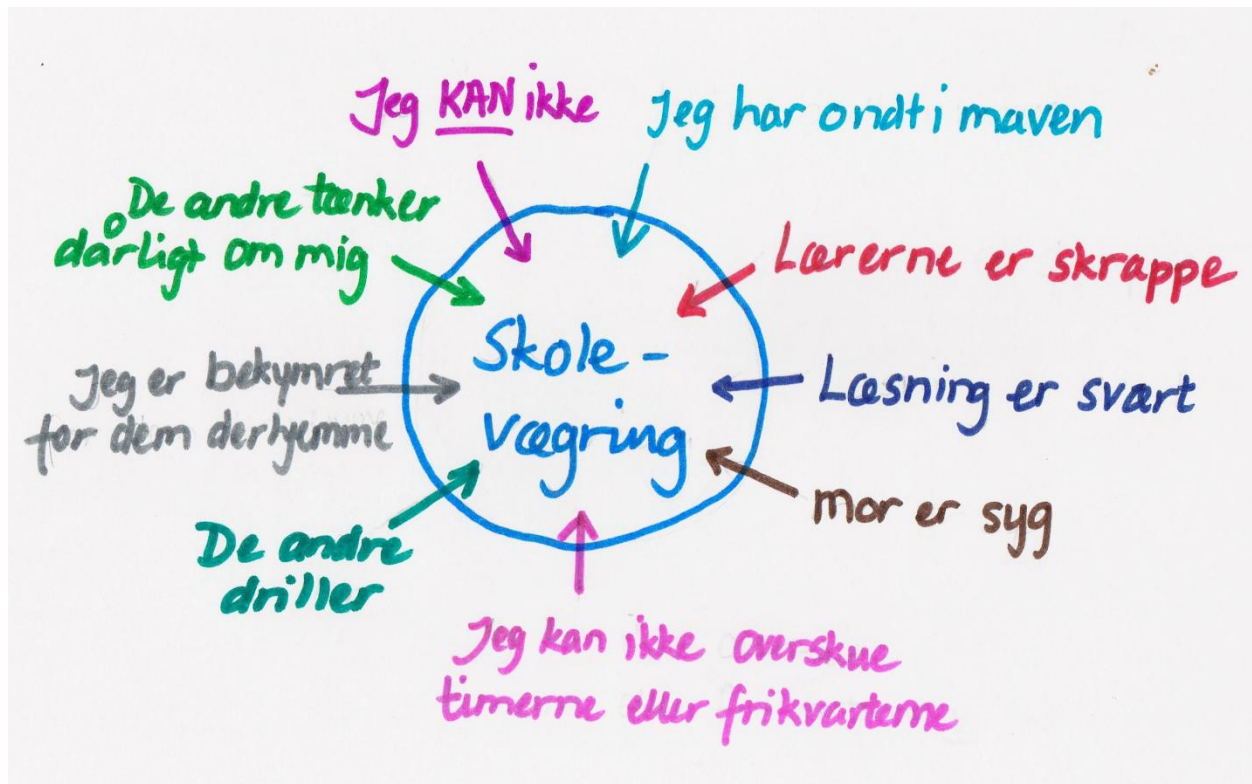 Jeg KAN ikke
Jeg har ondt i maven
De andre tænker
dårligt om mig
Lærerne er skrappe
Skole-
vægring
Jeg er bekymret
for dem derhjemme
Læsning er svært
mor er syg
De andre
driller
Jeg kan ikke overskue
timerne eller frikvarterne